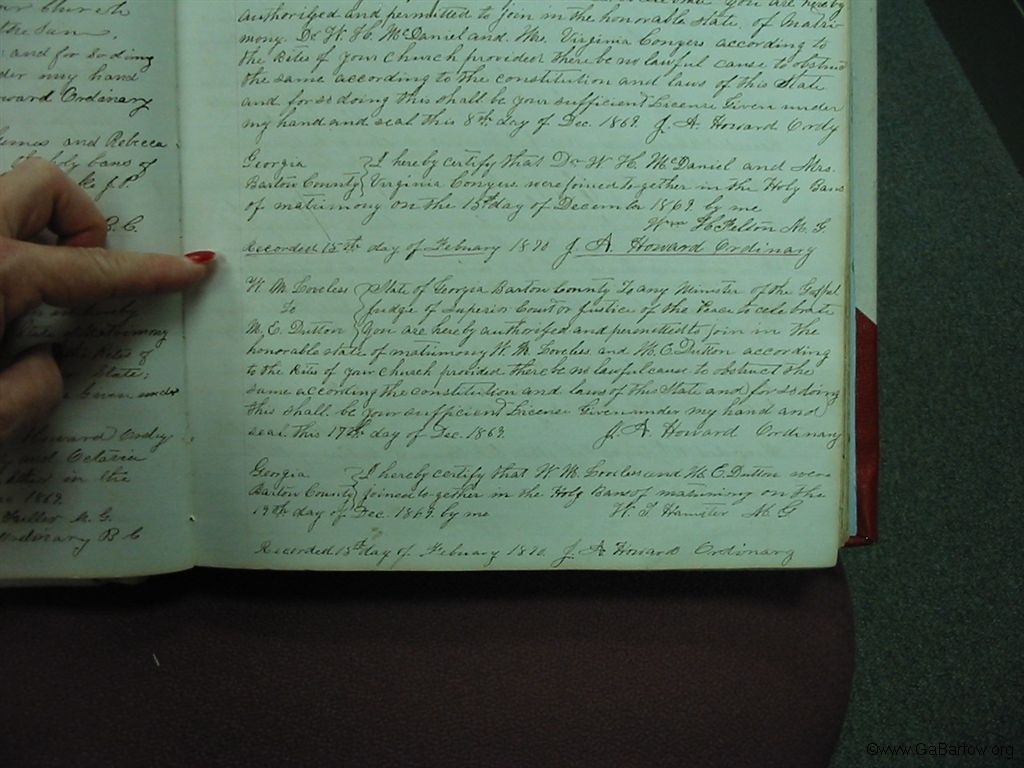 ur church
the Sam
and for so doing
der my hand
oward Ordinary
James and Rebecca
holy bans of
J. P.
B. C.
State of Matrimony
the Rites of
State;
Given under
Howard Ordy
and Octavia
in the
1869
Fuller M. G.
Ordinary B C
You are hereby
authorised and permitted to join in the honorable state of Matri-
mony. Dr W. H. McDaniel and Mrs. Virginia Conyers according to
the Rites of your Church provided there be no lawful cause to obstruct
the same according to the constitution and laws of this State
and for so doing this shall be your sufficient License Given under
my hand and seal this 8th day of Dec. 1869. J. A. Howard Ordy
Georgia I hereby certify that Dr W. H. McDaniel and Mrs.
Bartow County Virginia Conyers were joined together in the Holy Bans
of matrimony on the 15th day of December 1869 by me
Wm H Felton M. G
Recorded 15th day of Febuary 1870 J. A. Howard Ordinary
W. M. Loveless State of Georgia Bartow County To any Minister of the Gospel
To Judge of Superior Court or Justice of the Peace to celebrate
M. E. Dutton You are hereby authorised and permitted to join in the
honorable state of matrimony W. M. Loveless and M. E. Dutton according
to the Rites of your church provided there be no lawful cause to obstruct the
same according the constitution and laws of this State and for so doing
this shall be your sufficient License Given under my hand and
seal this 17th day of Dec. 1869. J. A. Howard Ordinary
Georgia I hereby certify that W. M. Loveless and M. E. Dutton were
Bartow County joined together in the Holy Bans of matrimony on the
19th day of Dec. 1869. by me W. T. Hamiter M G
Recorded 15th day of February 1870. J. A Howard Ordinary
©www.GaBartow.org